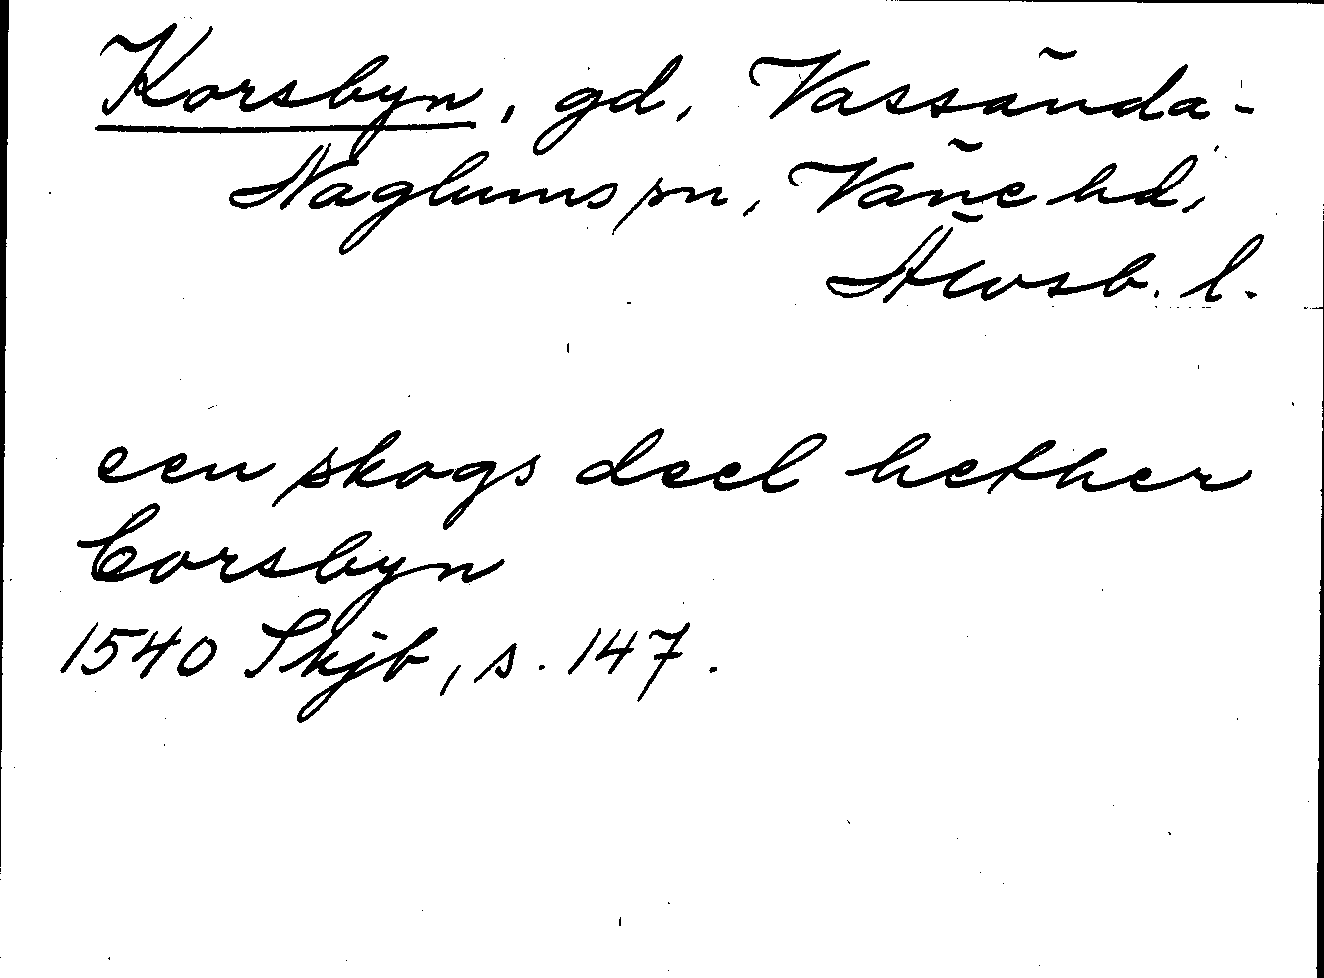 Korsbyn, gd, Vassända-
Naglums sn, Väne hd,
Älvsb. l.
een skogs deel hether
Corsbyn
1540 Skjb, s. 147.